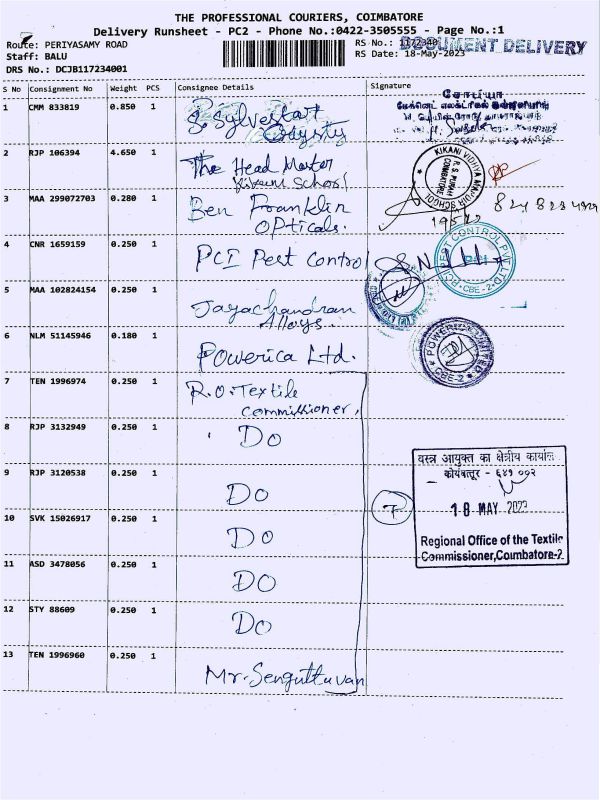 THE PROFESSIONAL COURIERS, COIMBATORE
Delivery Runsheet - PC2 - Phone No.:0422-3505555 - Page No.:1
Route: PERIYASAMY ROAD
Staff: BALU
DRS No.: DCJB117234001
RS No.:
DOCUMENT DELIVERY
RS Date: 18-May-2023
S No Consignment No Weight PCS Consignee Details Signature
1 CMM 833819 0.850 1 S. Sylvestart
Odysty
சோபியா
2 RJP 106394 4.650 1 The Head Master
Kikani School
KIKANI VIDHYA MANDIR SCHOOL
R. S. PURAM
COIMBATORE
3 MAA 299072703 0.280 1 Ben Franklin
Opticals.
4 CNR 1659159 0.250 1 PCI Pest Control
PCI PEST CONTROL PVT LTD
PCI
CBE-2
5 MAA 102824154 0.250 1 Jayachandran
Alloys.
6 NLM 51145946 0.180 1 Powerica Ltd.
POWERICA LIMITED
CBE-2
7 TEN 1996974 0.250 1 R.O. Textile
Commissioner,
8 RJP 3132949 0.250 1 Do
9 RJP 3120538 0.250 1 Do
10 SVK 15026917 0.250 1 Do
11 ASD 3478056 0.250 1 Do
12 STY 88609 0.250 1 Do
13 TEN 1996960 0.250 1 Mr. Senguttuvan
7
वस्त्र आयुक्त का क्षेत्रीय कार्यालय
कोयंबत्तूर - ६४१ ००२
18 MAY 2023
Regional Office of the Textile
Commissioner, Coumbatore-2